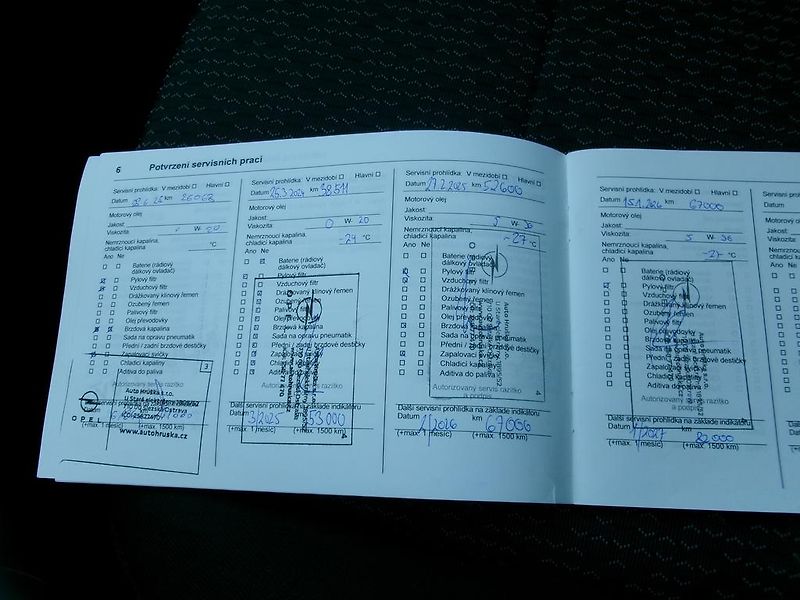 6 Potvrzení servisních prací
Servisní prohlídka: V mezidobí Hlavní
Datum km
Motorový olej
Jakost:
Viskozita: W- 20
Nemrznoucí kapalina,
chladicí kapalina °C
Ano Ne
Baterie (rádiový
dálkový ovladač)
Pylový filtr
Vzduchový filtr
Drážkovaný klínový řemen
Ozubený řemen
Palivový filtr
Olej převodovky
Brzdová kapalina
Sada na opravu pneumatik
Přední / zadní brzdové destičky
Zapalovací svíčky
Chladicí kapaliny
Aditiva do paliva
3
Auto Hruška s.r.o.
OPEL
www.autohruska.cz
(+max. 1 měsíc) (+max. 1500 km)
Servisní prohlídka: V mezidobí Hlavní
Datum 25.3.2024 km 38511
Motorový olej
Jakost:
Viskozita: 0 W- 20
Nemrznoucí kapalina,
chladicí kapalina -24 °C
Ano Ne
Baterie (rádiový
dálkový ovladač)
Pylový filtr
Vzduchový filtr
Drážkovaný klínový řemen
Ozubený řemen
Palivový filtr
Olej převodovky
Brzdová kapalina
Sada na opravu pneumatik
Přední / zadní brzdové destičky
Zapalovací svíčky
Chladicí kapaliny
Aditiva do paliva
Autorizovaný servis razítko
4
Další servisní prohlídka na základě indikátoru
Datum 3/2025 km 53000
(+max. 1 měsíc) (+max. 1500 km)
Servisní prohlídka: V mezidobí Hlavní
Datum 27.2.2025 km 52600
Motorový olej
Jakost:
Viskozita: 5 W- 30
Nemrznoucí kapalina,
chladicí kapalina -27 °C
Ano Ne
Baterie (rádiový
dálkový ovladač)
Pylový filtr
Vzduchový filtr
Drážkovaný klínový řemen
Ozubený řemen
Palivový filtr
Olej převodovky
Brzdová kapalina
Sada na opravu pneumatik
Přední / zadní brzdové destičky
Zapalovací svíčky
Chladicí kapaliny
Aditiva do paliva
Autorizovaný servis razítko
a podpis
4
Další servisní prohlídka na základě indikátoru
Datum 1/2026 km 67000
(+max. 1 měsíc) (+max. 1500 km)
Servisní prohlídka: V mezidobí Hlavní
Datum 15.1.2026 km 67000
Motorový olej
Jakost:
Viskozita: 5 W- 30
Nemrznoucí kapalina,
chladicí kapalina -27 °C
Ano Ne
Baterie (rádiový
dálkový ovladač)
Pylový filtr
Vzduchový filtr
Drážkovaný klínový řemen
Ozubený řemen
Palivový filtr
Olej převodovky
Brzdová kapalina
Sada na opravu pneumatik
Přední / zadní brzdové destičky
Zapalovací svíčky
Chladicí kapaliny
Aditiva do paliva
Autorizovaný servis razítko
a podpis
4
Další servisní prohlídka na základě indikátoru
Datum 1/2027 km 82000
(+max. 1 měsíc) (+max. 1500 km)